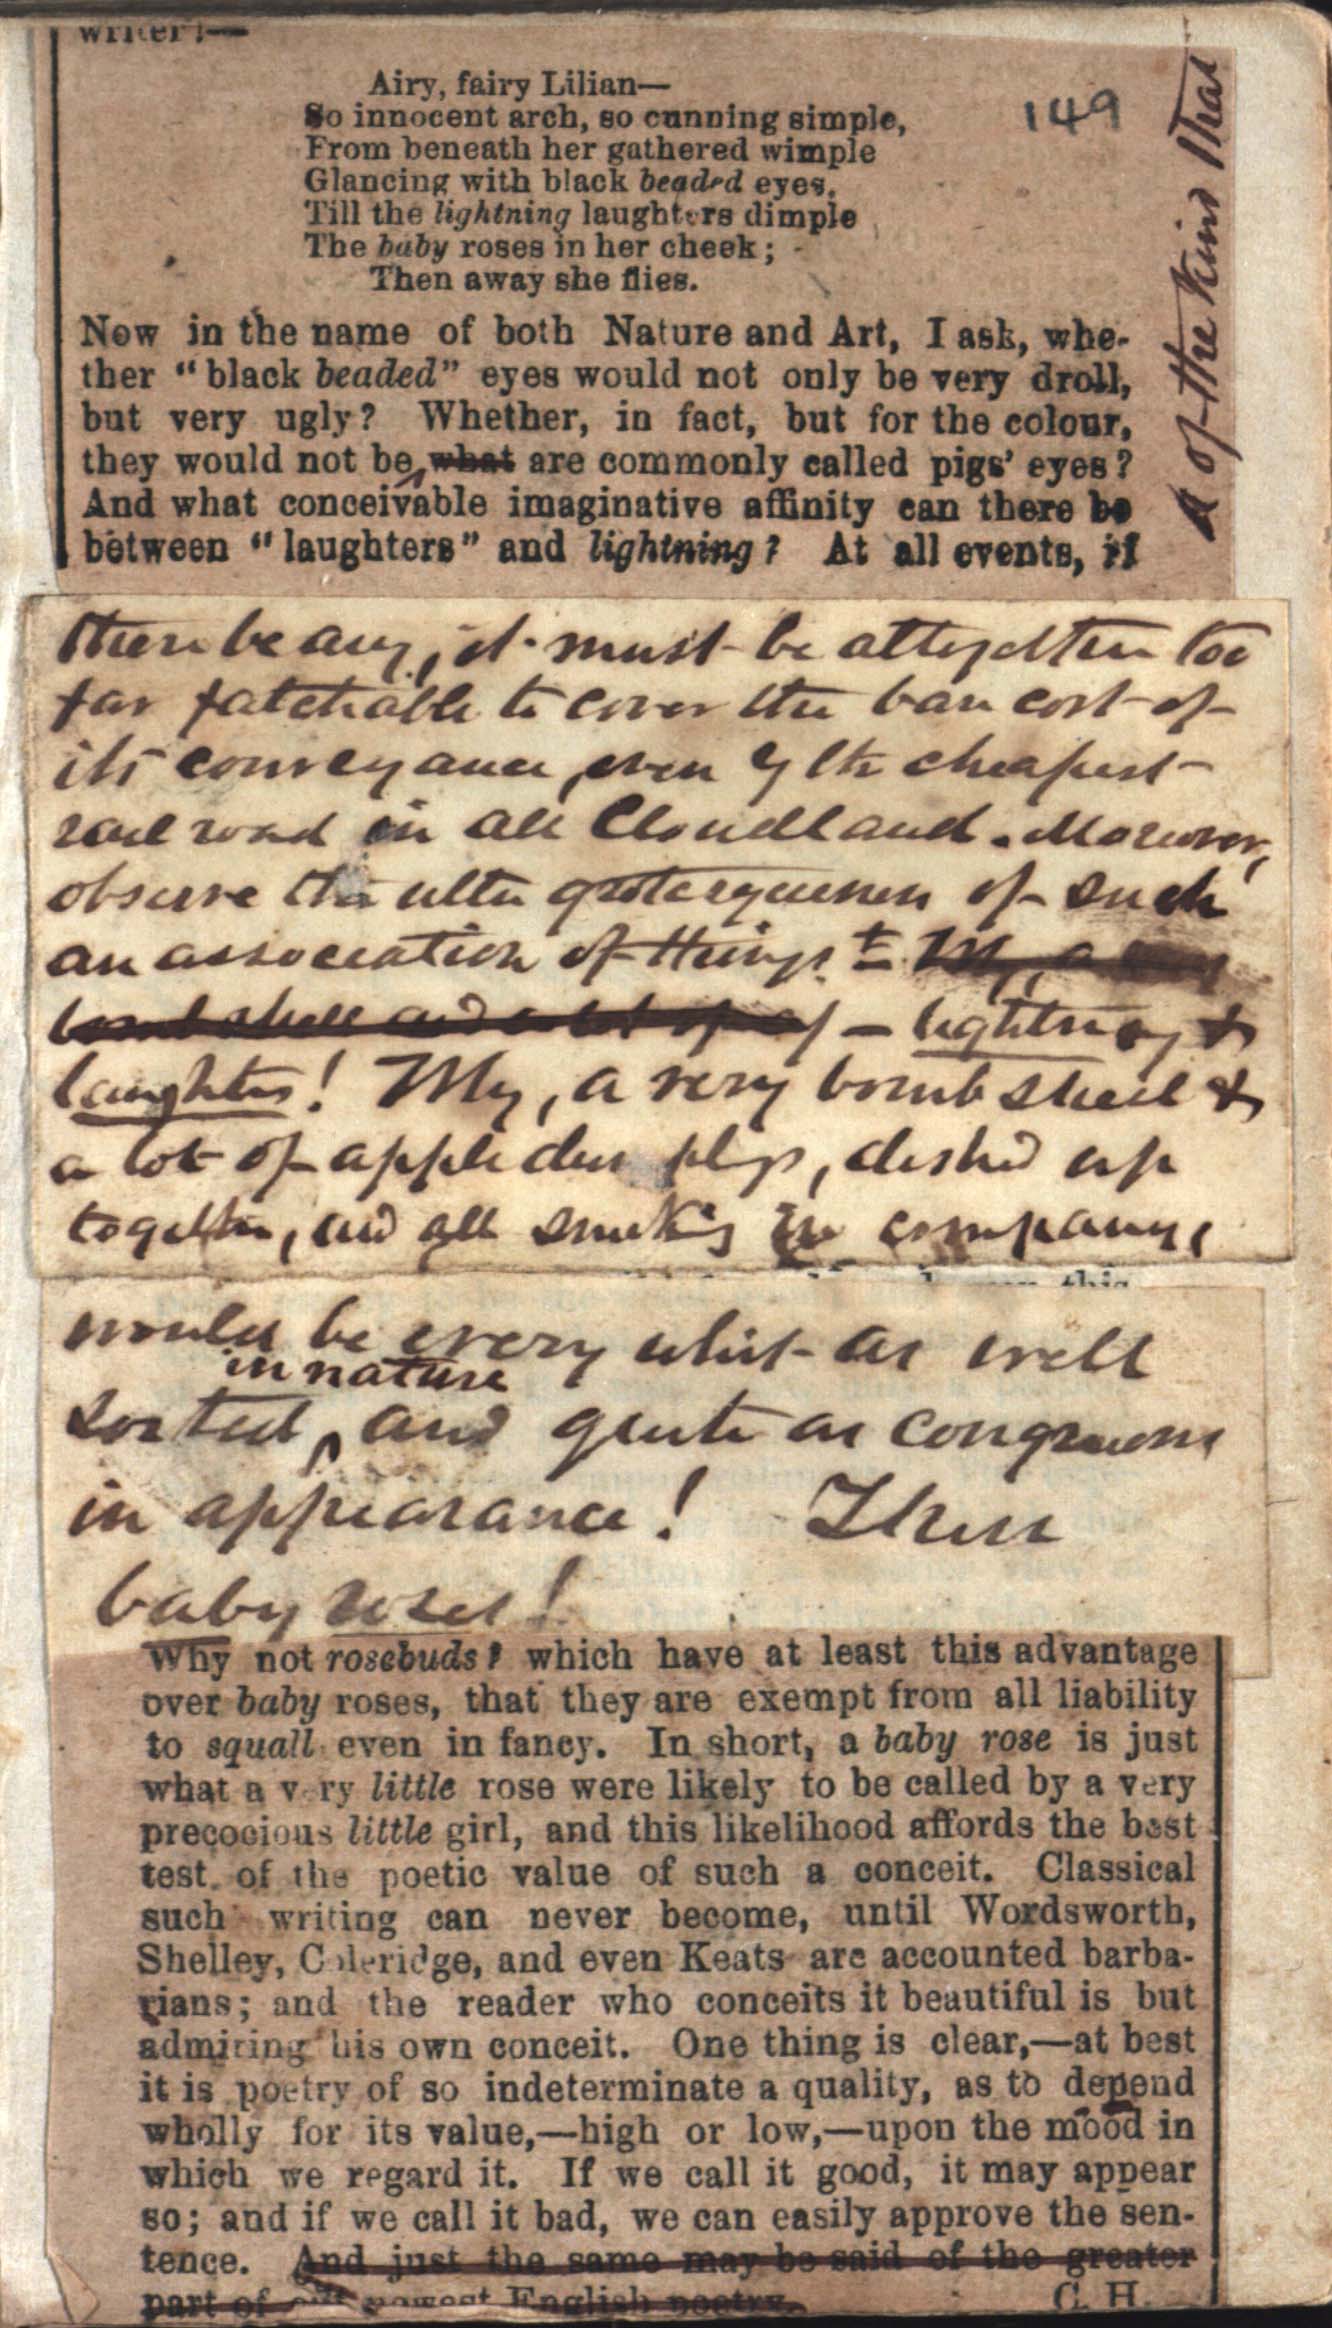 writer!—
Airy, fairy Lilian—
149
So innocent arch, so cunning simple,
From beneath her gathered wimple
Glancing with black beaded eyes,
Till the lightning laughters dimple
The baby roses in her cheek;
Then away she flies.
of the kind that
Now in the name of both Nature and Art, I ask, whe-
ther "black beaded" eyes would not only be very droll,
but very ugly? Whether, in fact, but for the colour,
they would not be what are commonly called pigs' eyes?
And what conceivable imaginative affinity can there be
between "laughters" and lightning? At all events, if
there be any, it must be altogether too
far fatchable to cover the bare cost of
its conveyance, even by the cheapest
rail road in all Cloudland. Moreover,
observe the utter grotesqueness of such
an association of things! My, a
bomb shell and a lot of — lightning &
laughter! My, a very bomb shell &
a lot of apple dumplgs, dished up
together, and all smoking in company,
would be every whit as well
in nature
sorted, and quite as congruous
in appearance! Then
baby roses!
Why not rosebuds? which have at least this advantage
over baby roses, that they are exempt from all liability
to squall even in fancy. In short, a baby rose is just
what a very little rose were likely to be called by a very
precocious little girl, and this likelihood affords the best
test of the poetic value of such a conceit. Classical
such writing can never become, until Wordsworth,
Shelley, Coleridge, and even Keats are accounted barba-
rians; and the reader who conceits it beautiful is but
admiring his own conceit. One thing is clear,—at best
it is poetry of so indeterminate a quality, as to depend
wholly for its value,—high or low,—upon the mood in
which we regard it. If we call it good, it may appear
so; and if we call it bad, we can easily approve the sen-
tence. And just the same may be said of the greater
part of our newest English poetry.
C. H.